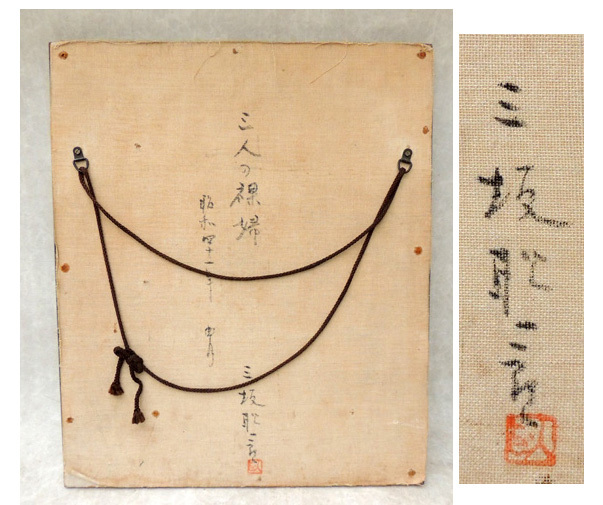 三人の裸婦
昭和四十一年
三坂耿一郎
三坂耿一郎